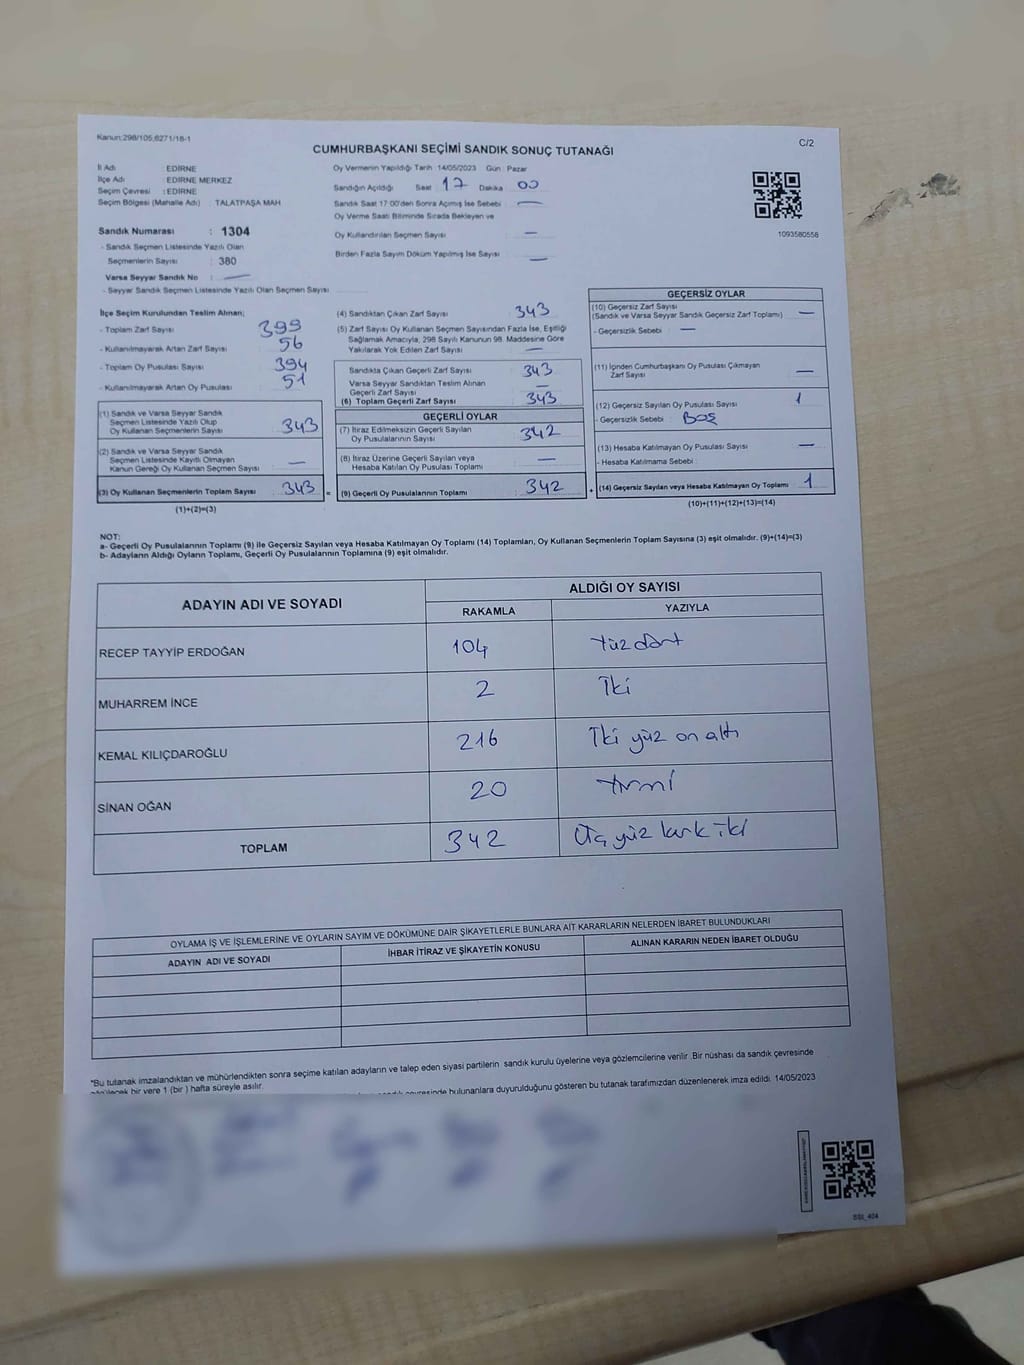 Kanun:298/105,6271/18-1
C/2
CUMHURBAŞKANI SEÇİMİ SANDIK SONUÇ TUTANAĞI
İl Adı EDİRNE
İlçe Adı EDİRNE MERKEZ
Seçim Çevresi : EDİRNE
Seçim Bölgesi (Mahalle Adı) : TALATPAŞA MAH
Sandık Numarası : 1304
- Sandık Seçmen Listesinde Yazılı Olan
Seçmenlerin Sayısı : 380
Varsa Seyyar Sandık No : —
- Seyyar Sandık Seçmen Listesinde Yazılı Olan Seçmen Sayısı
Oy Vermenin Yapıldığı Tarih :14/05/2023 Gün : Pazar
Sandığın Açıldığı Saat 17 Dakika 00
Sandık Saat 17:00'den Sonra Açımış İse Sebebi —
Oy Verme Saati Bitiminde Sırada Bekleyen ve
Oy Kullandırılan Seçmen Sayısı —
Birden Fazla Sayım Döküm Yapılmış İse Sayısı —
1093580558
İlçe Seçim Kurulundan Teslim Alınan;
- Toplam Zarf Sayısı 399
- Kullanılmayarak Artan Zarf Sayısı 56
- Toplam Oy Pusulası Sayısı 394
- Kullanılmayarak Artan Oy Pusulası 51
(1) Sandık ve Varsa Seyyar Sandık
Seçmen Listesinde Yazılı Olup
Oy Kullanan Seçmenlerin Sayısı 343
(2) Sandık ve Varsa Seyyar Sandık
Seçmen Listesinde Kayıtlı Olmayan
Kanun Gereği Oy Kullanan Seçmen Sayısı —
(3) Oy Kullanan Seçmenlerin Toplam Sayısı 343 =
(1)+(2)=(3)
(4) Sandıktan Çıkan Zarf Sayısı 343
(5) Zarf Sayısı Oy Kullanan Seçmen Sayısından Fazla İse, Eşitliği
Sağlamak Amacıyla, 298 Sayılı Kanunun 98. Maddesine Göre
Yakılarak Yok Edilen Zarf Sayısı —
Sandıkta Çıkan Geçerli Zarf Sayısı 343
Varsa Seyyar Sandıktan Teslim Alınan
Geçerli Zarf Sayısı —
(6) Toplam Geçerli Zarf Sayısı 343
GEÇERLİ OYLAR
(7) İtiraz Edilmeksizin Geçerli Sayılan
Oy Pusulalarının Sayısı 342
(8) İtiraz Üzerine Geçerli Sayılan veya
Hesaba Katılan Oy Pusulası Toplamı —
(9) Geçerli Oy Pusulalarının Toplamı 342 +
GEÇERSİZ OYLAR
(10) Geçersiz Zarf Sayısı
(Sandık ve Varsa Seyyar Sandık Geçersiz Zarf Toplamı) —
- Geçersizlik Sebebi : —
(11) İçinden Cumhurbaşkanı Oy Pusulası Çıkmayan
Zarf Sayısı —
(12) Geçersiz Sayılan Oy Pusulası Sayısı 1
- Geçersizlik Sebebi : BOŞ
(13) Hesaba Katılmayan Oy Pusulası Sayısı —
- Hesaba Katılmama Sebebi :
(14) Geçersiz Sayılan veya Hesaba Katılmayan Oy Toplamı 1
(10)+(11)+(12)+(13)=(14)
NOT:
a- Geçerli Oy Pusulalarının Toplamı (9) ile Geçersiz Sayılan veya Hesaba Katılmayan Oy Toplamı (14) Toplamları, Oy Kullanan Seçmenlerin Toplam Sayısına (3) eşit olmalıdır. (9)+(14)=(3)
b- Adayların Aldığı Oyların Toplamı, Geçerli Oy Pusulalarının Toplamına (9) eşit olmalıdır.
ADAYIN ADI VE SOYADI
ALDIĞI OY SAYISI
RAKAMLA YAZIYLA
RECEP TAYYİP ERDOĞAN 104 Yüz dört
MUHARREM İNCE 2 İki
KEMAL KILIÇDAROĞLU 216 İki yüz on altı
SİNAN OĞAN 20 Yirmi
TOPLAM 342 Üç yüz kırk iki
OYLAMA İŞ VE İŞLEMLERİNE VE OYLARIN SAYIM VE DÖKÜMÜNE DAİR ŞİKAYETLERLE BUNLARA AİT KARARLARIN NELERDEN İBARET BULUNDUKLARI
ADAYIN ADI VE SOYADI İHBAR İTİRAZ VE ŞİKAYETİN KONUSU ALINAN KARARIN NEDEN İBARET OLDUĞU
*Bu tutanak imzalandıktan ve mühürlendikten sonra seçime katılan adayların ve talep eden siyasi partilerin sandık kurulu üyelerine veya gözlemcilerine verilir .Bir nüshası da sandık çevresinde
bir yere 1 (bir ) hafta süreyle asılır.
bulunanlara duyurulduğunu gösteren bu tutanak tarafımızdan düzenlenerek imza edildi. 14/05/2023